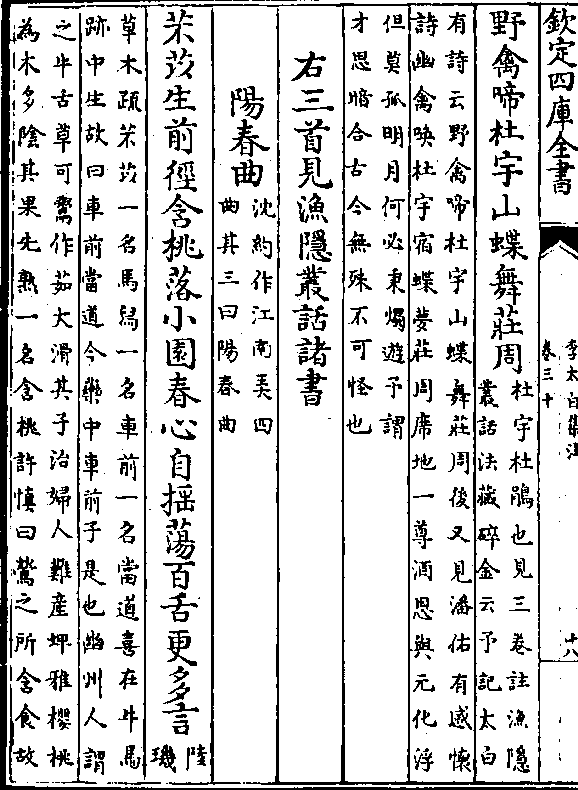 欽定四庫全書
李太白集注
卷三十
十八
野禽啼杜宇山蝶舞莊周
杜宇杜鵑也見三卷註漁隱
叢話法藏碎金云予記太白
有詩云野禽啼杜宇山蝶舞莊周後又見潘佑有感懷
詩幽禽喚杜宇宿蝶夢莊周席地一尊酒思與元化浮
但莫孤明月何必秉燭遊予謂
才思暗合古今無殊不可怪也
右三首見漁隱叢話諸書
陽春曲
沈約作江南弄四
曲其三曰陽春曲
芣苡生前徑含桃落小園春心自揺蕩百舌更多言
陸
璣
草木疏芣苡一名馬舄一名車前一名當道喜在牛馬
跡中生故曰車前當道今藥中車前子是也幽州人謂
之牛舌草可鬻作茹大滑其子治婦人難産埤雅櫻桃
為木多陰其果先熟一名含桃許慎曰鶯之所含食故